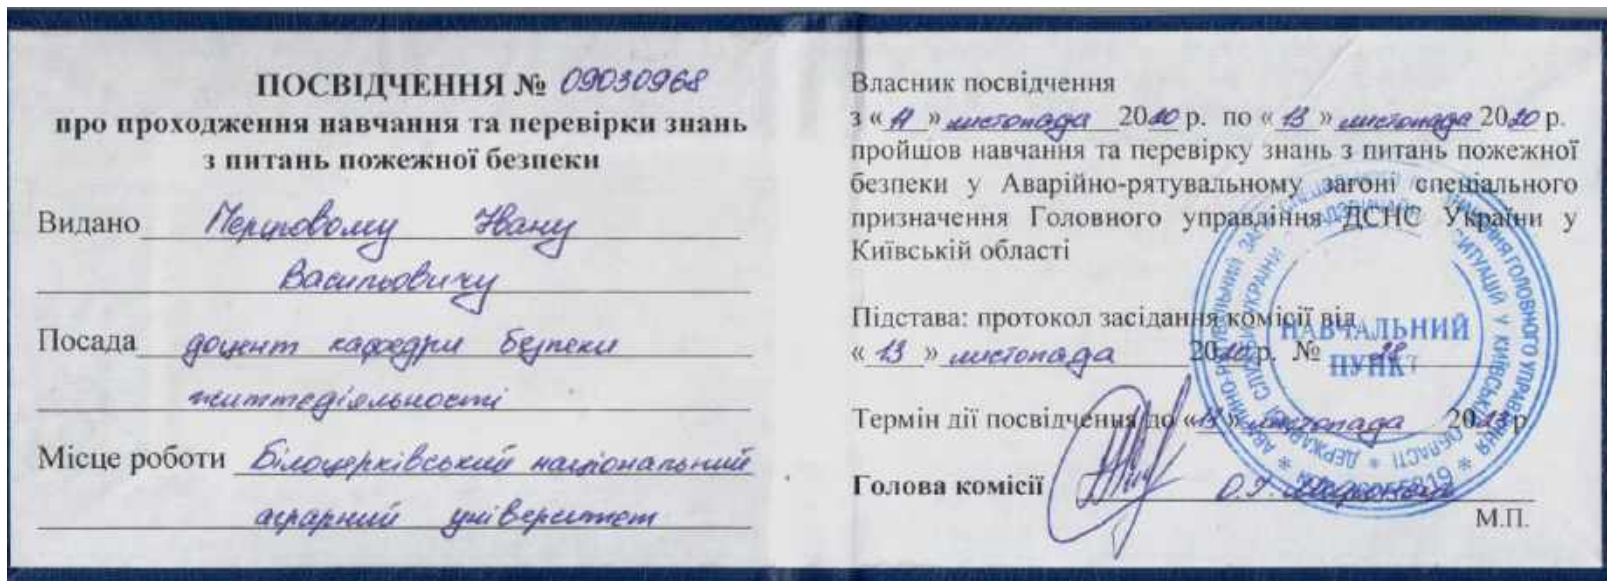 ПОСВІДЧЕННЯ № 09030968
про проходження навчання та перевірки знань
з питань пожежної безпеки
Видано Мерзловому Івану
Васильовичу
Посада доцент кафедри безпеки
життєдіяльності
Місце роботи Білоцерківський національний
аграрний університет
Власник посвідчення
з « 11 » листопада 2020 р. по « 13 » листопада 2020 р.
пройшов навчання та перевірку знань з питань пожежної
безпеки у Аварійно-рятувальному загоні спеціального
призначення Головного управління ДСНС України у
Київській області
Підстава: протокол засідання комісії від
« 13 » листопада 2020 р. №
Термін дії посвідчення до « 13 » листопада 2023 р
Голова комісії
М.П.
НАВЧАЛЬНИЙ
ПУНКТ